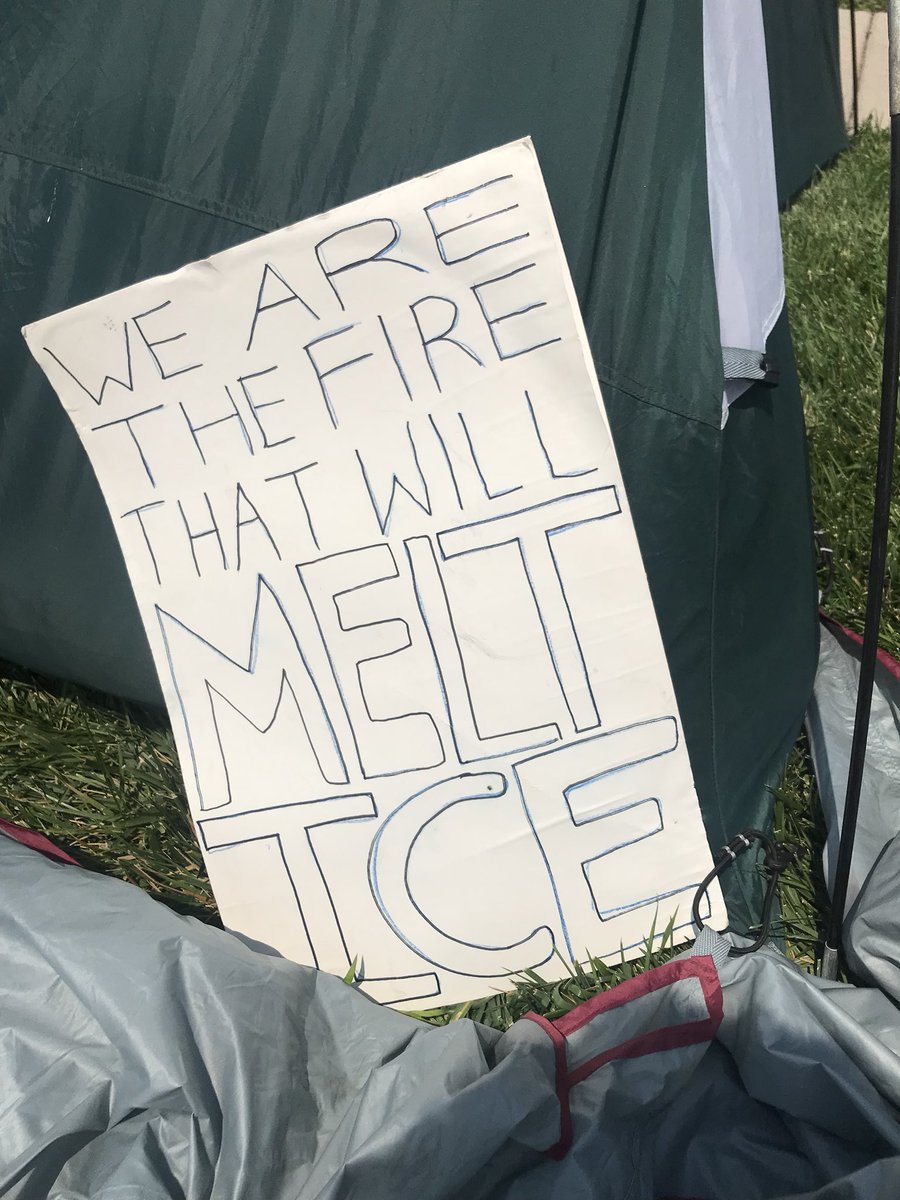 WE ARE
THE FIRE
THAT WILL
MELT
ICE